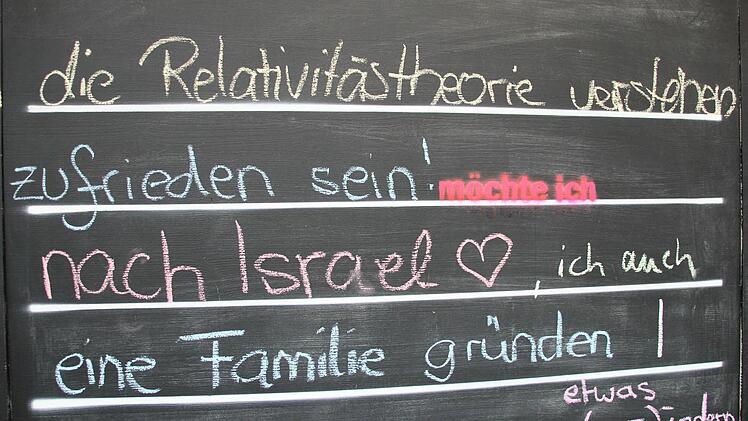 die Relativitästheorie verstehen
zufrieden sein! möchte ich
nach Israel ♡, ich auch
eine Familie gründen!
etwas